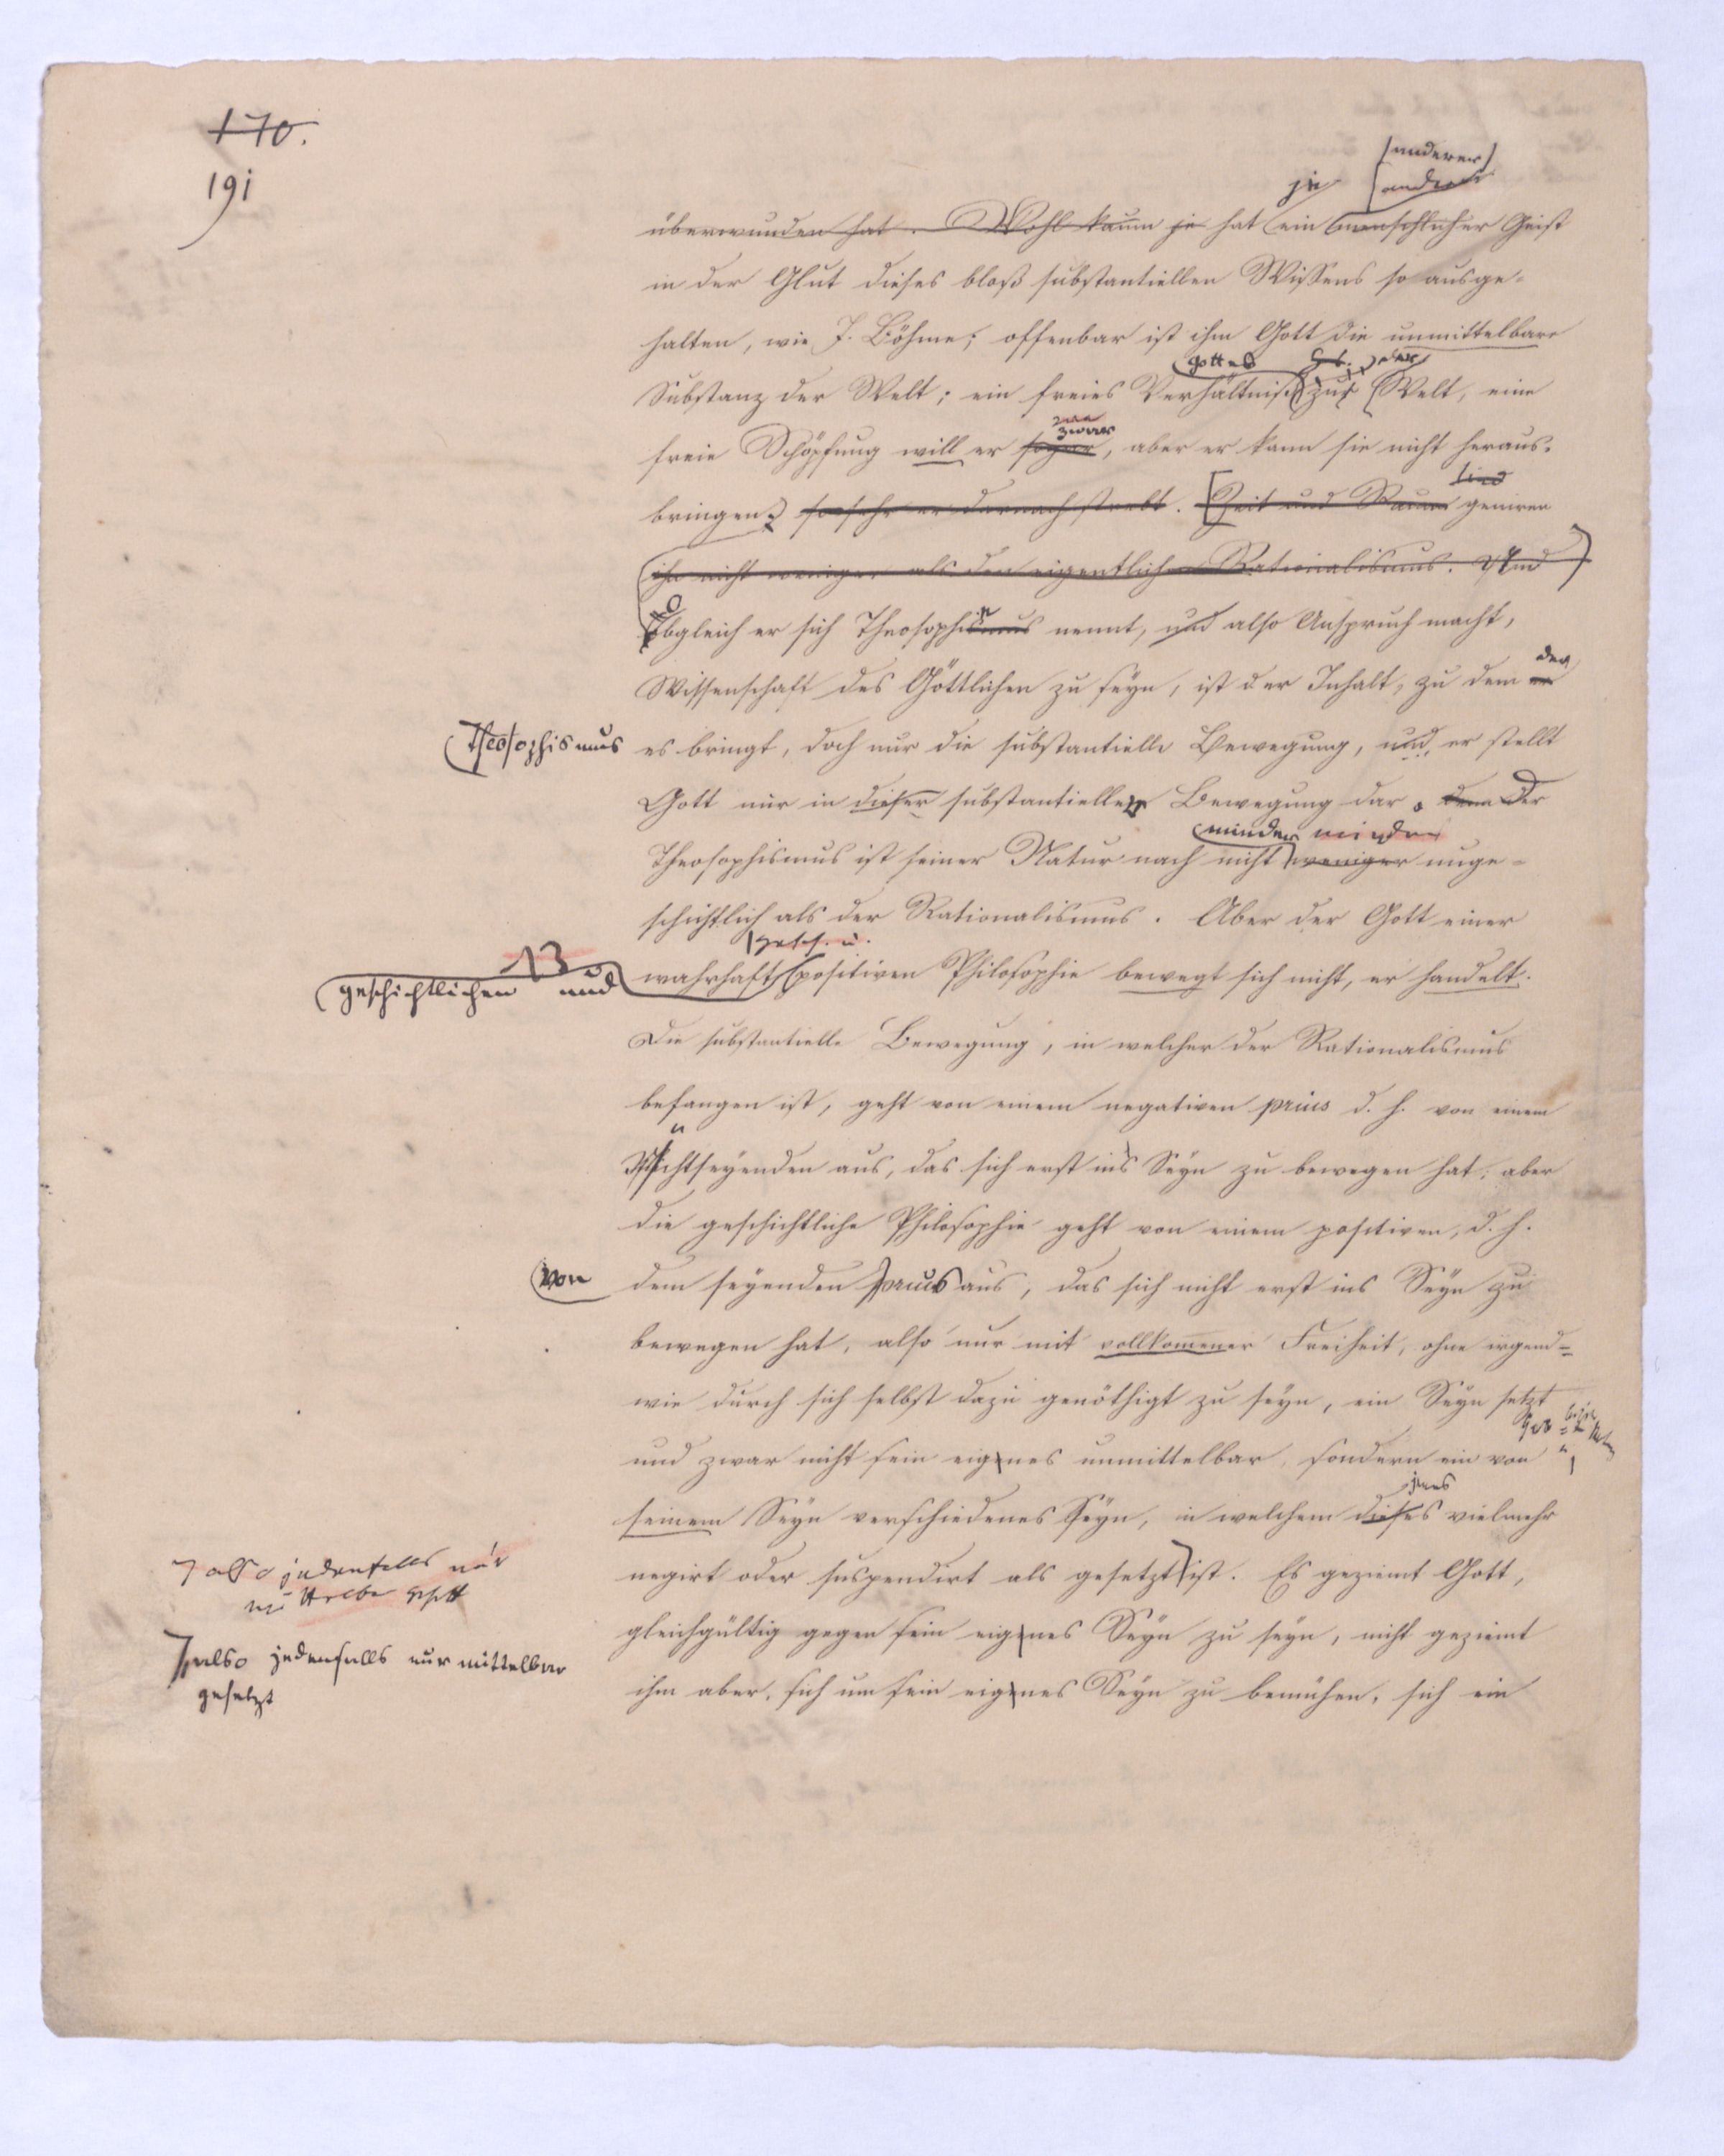 170.
191
anderer
je andrer
überwunden hat. Wohl kaum je hat ein menschlicher Geist
in der Glut dieses bloß substantiellen Wissens so ausge-
halten, wie J. Böhme; offenbar ist ihm Gott die unmittelbare
Gottes
Substanz der Welt; ein freies Verhältniß zur Welt, eine
zwar
freie Schöpfung will er sogar, aber er kann sie nicht heraus-
sind
bringen, so sehr er darnach strebt. Zeit und Raum geniren
ihn nicht weniger als den eigentlichen Rationalismus. Und
Obgleich er sich Theosophismus nennt, und also Anspruch macht,
der
Wissenschaft des Göttlichen zu seyn, ist der Inhalt, zu dem er
Theosophismus es bringt, doch nur die substantielle Bewegung, und er stellt
Gott nur in dieser substantiellen Bewegung dar. denn Der
minder minder
Theosophismus ist seiner Natur nach nicht weniger unge-
schichtlich als der Rationalismus. Aber der Gott einer
gesch. u.
13
geschichtlichen und wahrhaft positiven Philosophie bewegt sich nicht, er handelt.
Die substantielle Bewegung, in welcher der Rationalismus
befangen ist, geht von einem negativen prius d. h. von einem
Nichtseyenden aus, das sich erst ins Seyn zu bewegen hat; aber
die geschichtliche Philosophie geht von einem positiven, d. h.
von dem seyenden prius aus, das sich nicht erst ins Seyn zu
bewegen hat, also nur mit vollkommener Freiheit, ohne irgend-
wie durch sich selbst dazu genöthigt zu seyn, ein Seyn setzt
und zwar nicht sein eigenes unmittelbar, sondern ein von
jenes
seinem Seyn verschiedenes Seyn, in welchem dieses vielmehr
negirt oder suspendirt als gesetzt ist. Es geziemt Gott,
also jedenfalls nur
mittelbar gesetzt
gleichgültig gegen sein eigenes Seyn zu seyn, nicht geziemt
also jedenfalls nur mittelbar
gesetzt
ihm aber, sich um sein eigenes Seyn zu bemühen, sich ein